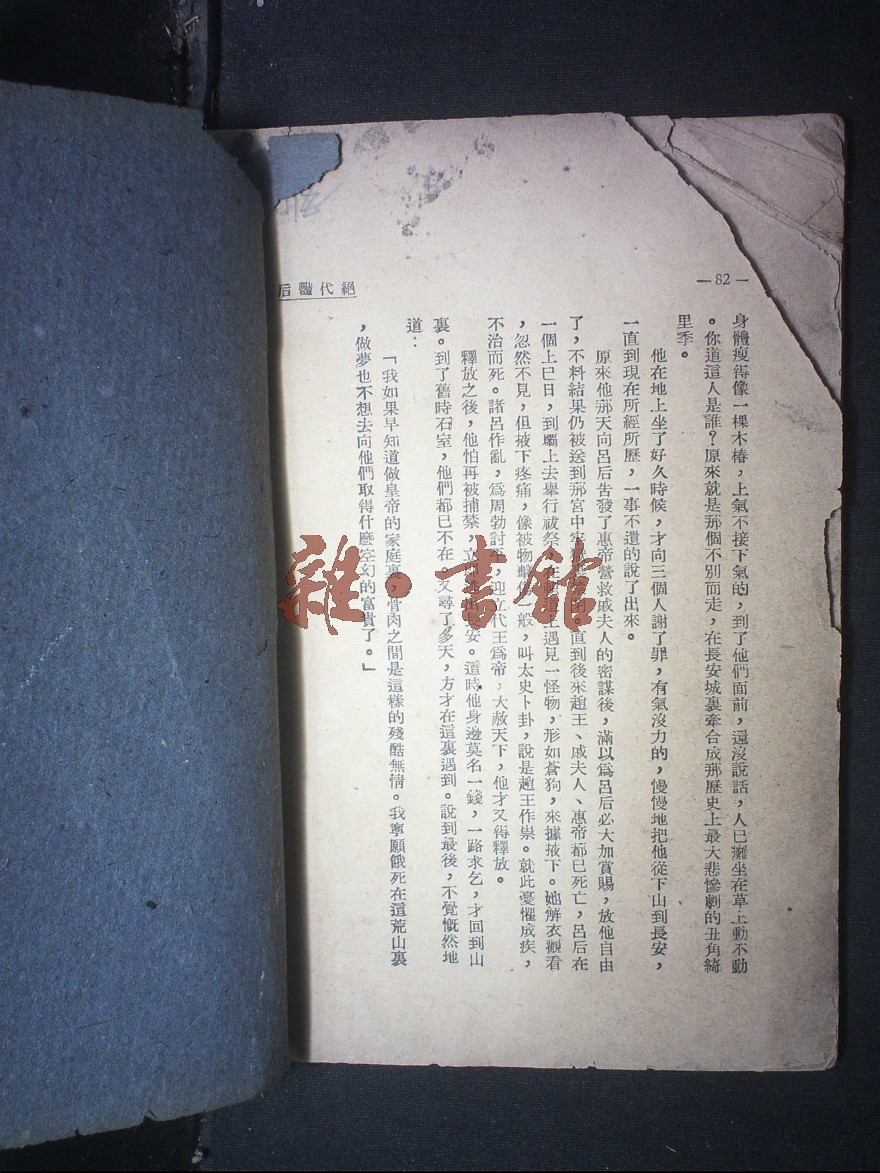 —82—
絕代豔后
身體瘦得像一棵木樁，上氣不接下氣的，到了他們面前，還沒說話，人已癱坐在草上動不動
。你道這人是誰？原來就是那個不別而走，在長安城裏牽合成那歷史上最大悲慘劇的丑角綺
里季。
他在地上坐了好久時候，才向三個人謝了罪，有氣沒力的，慢慢地把他從下山到長安，
一直到現在所經所歷，一事不遺的說了出來。
原來他那天向呂后告發了惠帝營救戚夫人的密謀後，滿以爲呂后必大加賞賜，放他自由
了，不料結果仍被送到那宮中直到後來趙王、戚夫人、惠帝都已死亡，呂后在
一個上巳日，到壩上去舉行祓祭，在上遇見一怪物，形如蒼狗，來據掖下。她解衣觀看
，忽然不見，但掖下疼痛，像被物擊傷一般，叫太史卜卦，說是趙王作祟。就此憂懼成疾，
不治而死。諸呂作亂，爲周勃討平，迎立代王爲帝，大赦天下，他才又得釋放。
釋放之後，他怕再被捕禁，立安。這時他身邊莫名一錢，一路求乞，才回到山
裏。到了舊時石室，他們都已不在。又尋了多天，方才在這裏遇到。說到最後，不覺慨然地
道：
「我如果早知道做皇帝的家庭裏，骨肉之間是這樣的殘酷無情。我寧願餓死在這荒山裏
，做夢也不想去向他們取得什麼空幻的富貴了。」
雜·書館